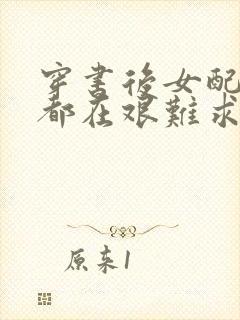 穿書後女配
都在艱難求
原来1